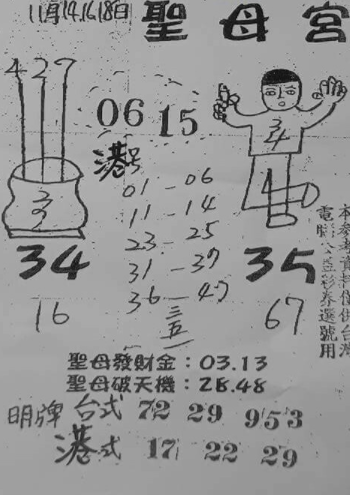 11月14.16.18日
聖母宮
427
06 15
港号
01-06
11-14
23-25
31-37
36-47
三五
34
16
35
67
本參考資料僅供台灣
電腦公益彩券選號用
聖母發財金：03.13
聖母破天機：28.48
明牌 台式 72 29 953
港式 17 22 29